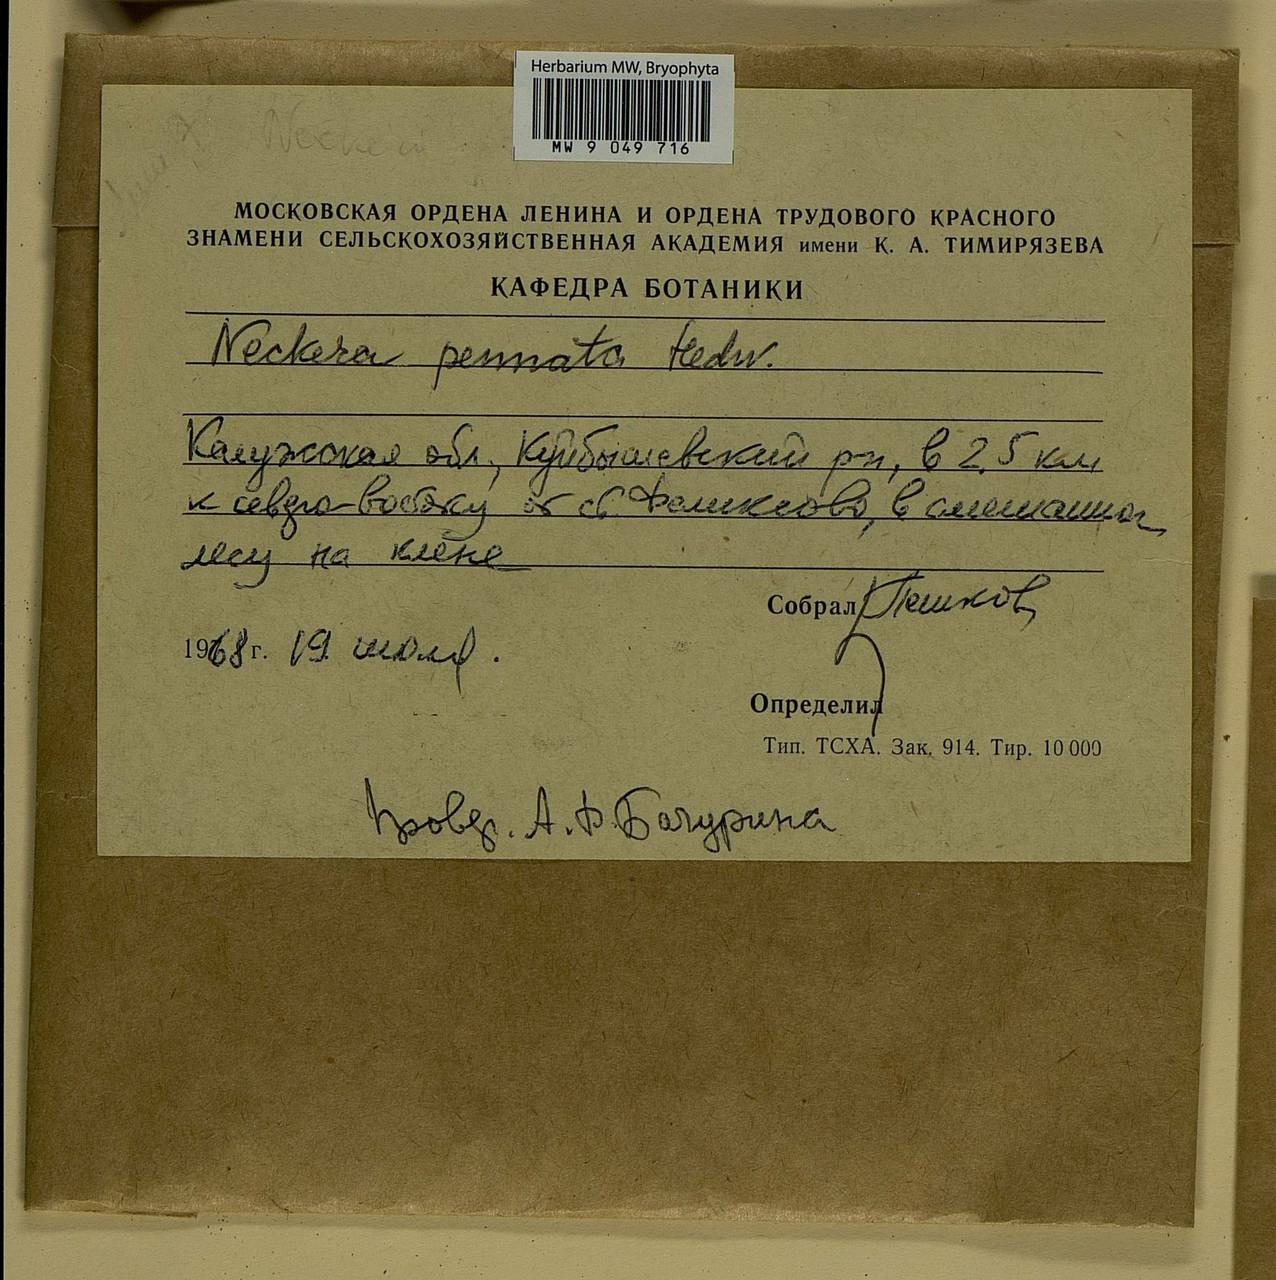 Herbarium MW, Bryophyta
MW 9 049 716
Neckera
МОСКОВСКАЯ ОРДЕНА ЛЕНИНА И ОРДЕНА ТРУДОВОГО КРАСНОГО
ЗНАМЕНИ СЕЛЬСКОХОЗЯЙСТВЕННАЯ АКАДЕМИЯ имени К. А. ТИМИРЯЗЕВА
КАФЕДРА БОТАНИКИ
Neckera pennata Hedw.
Калужская обл., Куйбышевский р-н, в 2,5 км
к северо-востоку от с. Феликсово, в смешанном
лесу на клене
Собрал Пешков
1968 г. 19 июля.
Определил
Тип. ТСХА. Зак. 914. Тир. 10 000
Провер. А. Ф. Бачурина